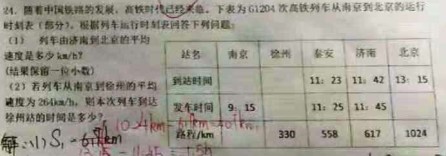 24. 随着中国铁路的发展，高铁时代已经来临。下表为G1204次高铁列车从南京到北京的运行
时刻表（部分）。根据列车运行时刻表回答下列问题：
（1）列车由济南到北京的平均
速度是多少km/h？
(结果保留一位小数)
（2）若列车从南京到徐州的平均
速度为264km/h，则本次列车到达
徐州站的时间是多少？
站名 南京 徐州 泰安 济南 北京
到站时间 11：23 11：42 13：15
发车时间 9：15 11：25 11：45
路程/km 330 558 617 1024
解：(1) S₁ = 1024km - 617km = 407km